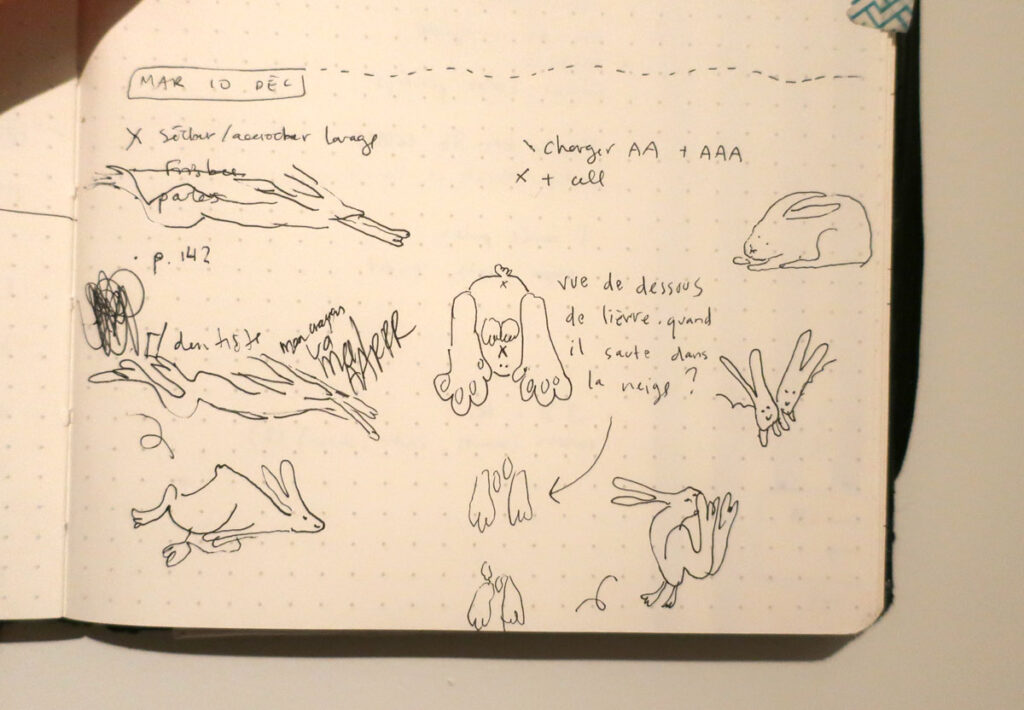 MAR 10 DÉC
X sécher/accrocher lavage
Frisbee
pates
· p. 142
dentiste
mon crayon
va
charger AA + AAA
X + cell
vue de dessous
de lièvre quand
il saute dans
la neige?